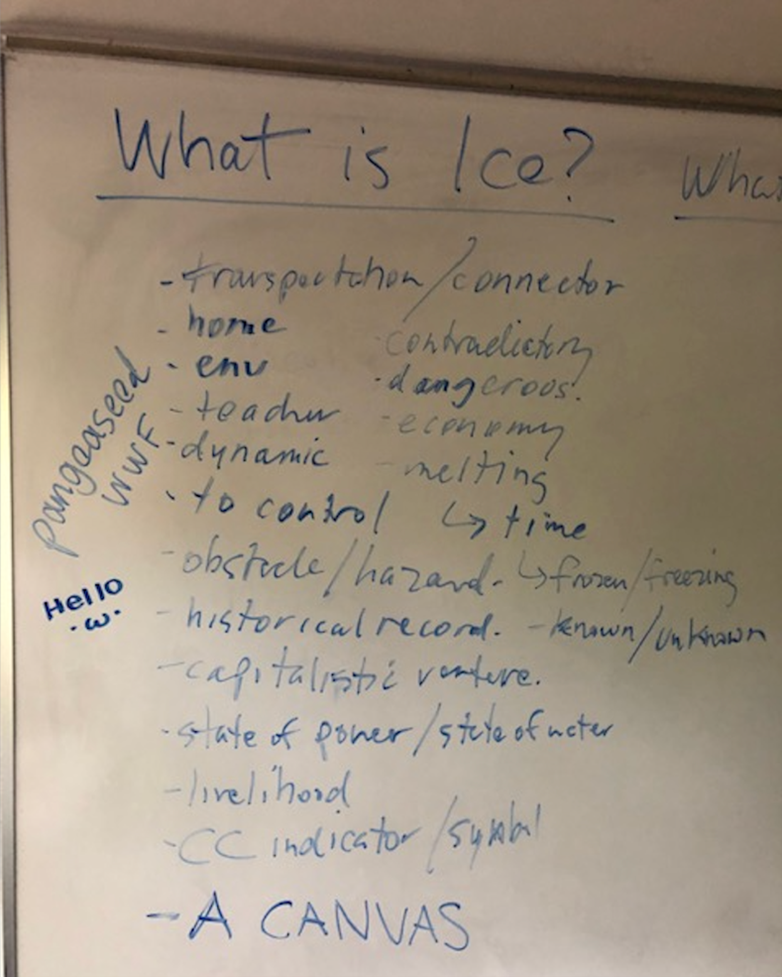 What is Ice?
Wha
- transportation/connector
- home
- env
- teacher
- dynamic
- to control
- obstacle/hazard.
- historical record.
- capitalistic venture.
- state of power/state of water
- livelihood
- CC indicator/symbol
- A CANVAS
- contradictory
- dangeroos.
- economy
- melting
↳ time
↳ frozen/freezing
- known/unknown
pangeaseed
WWF
Hello
·ω·